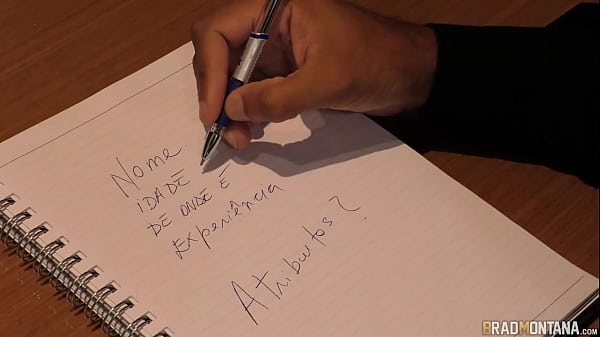 Nome
IDADE
DE ONDE É
Experiência
Atributos?
BRADMONTANA.COM